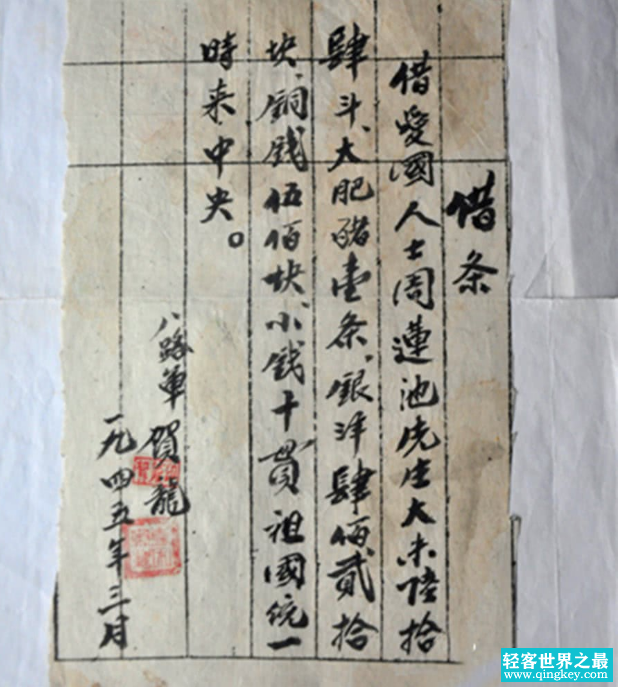 借条
借愛國人士周蓮池先生大米陸拾
肆斗、大肥豬壹条、銀洋肆佰貳拾
块、铜钱伍佰块、小钱十貫祖國统一
時来中央。
八路军 賀龍
一九四五年三月
轻客世界之最
www.qingkey.com